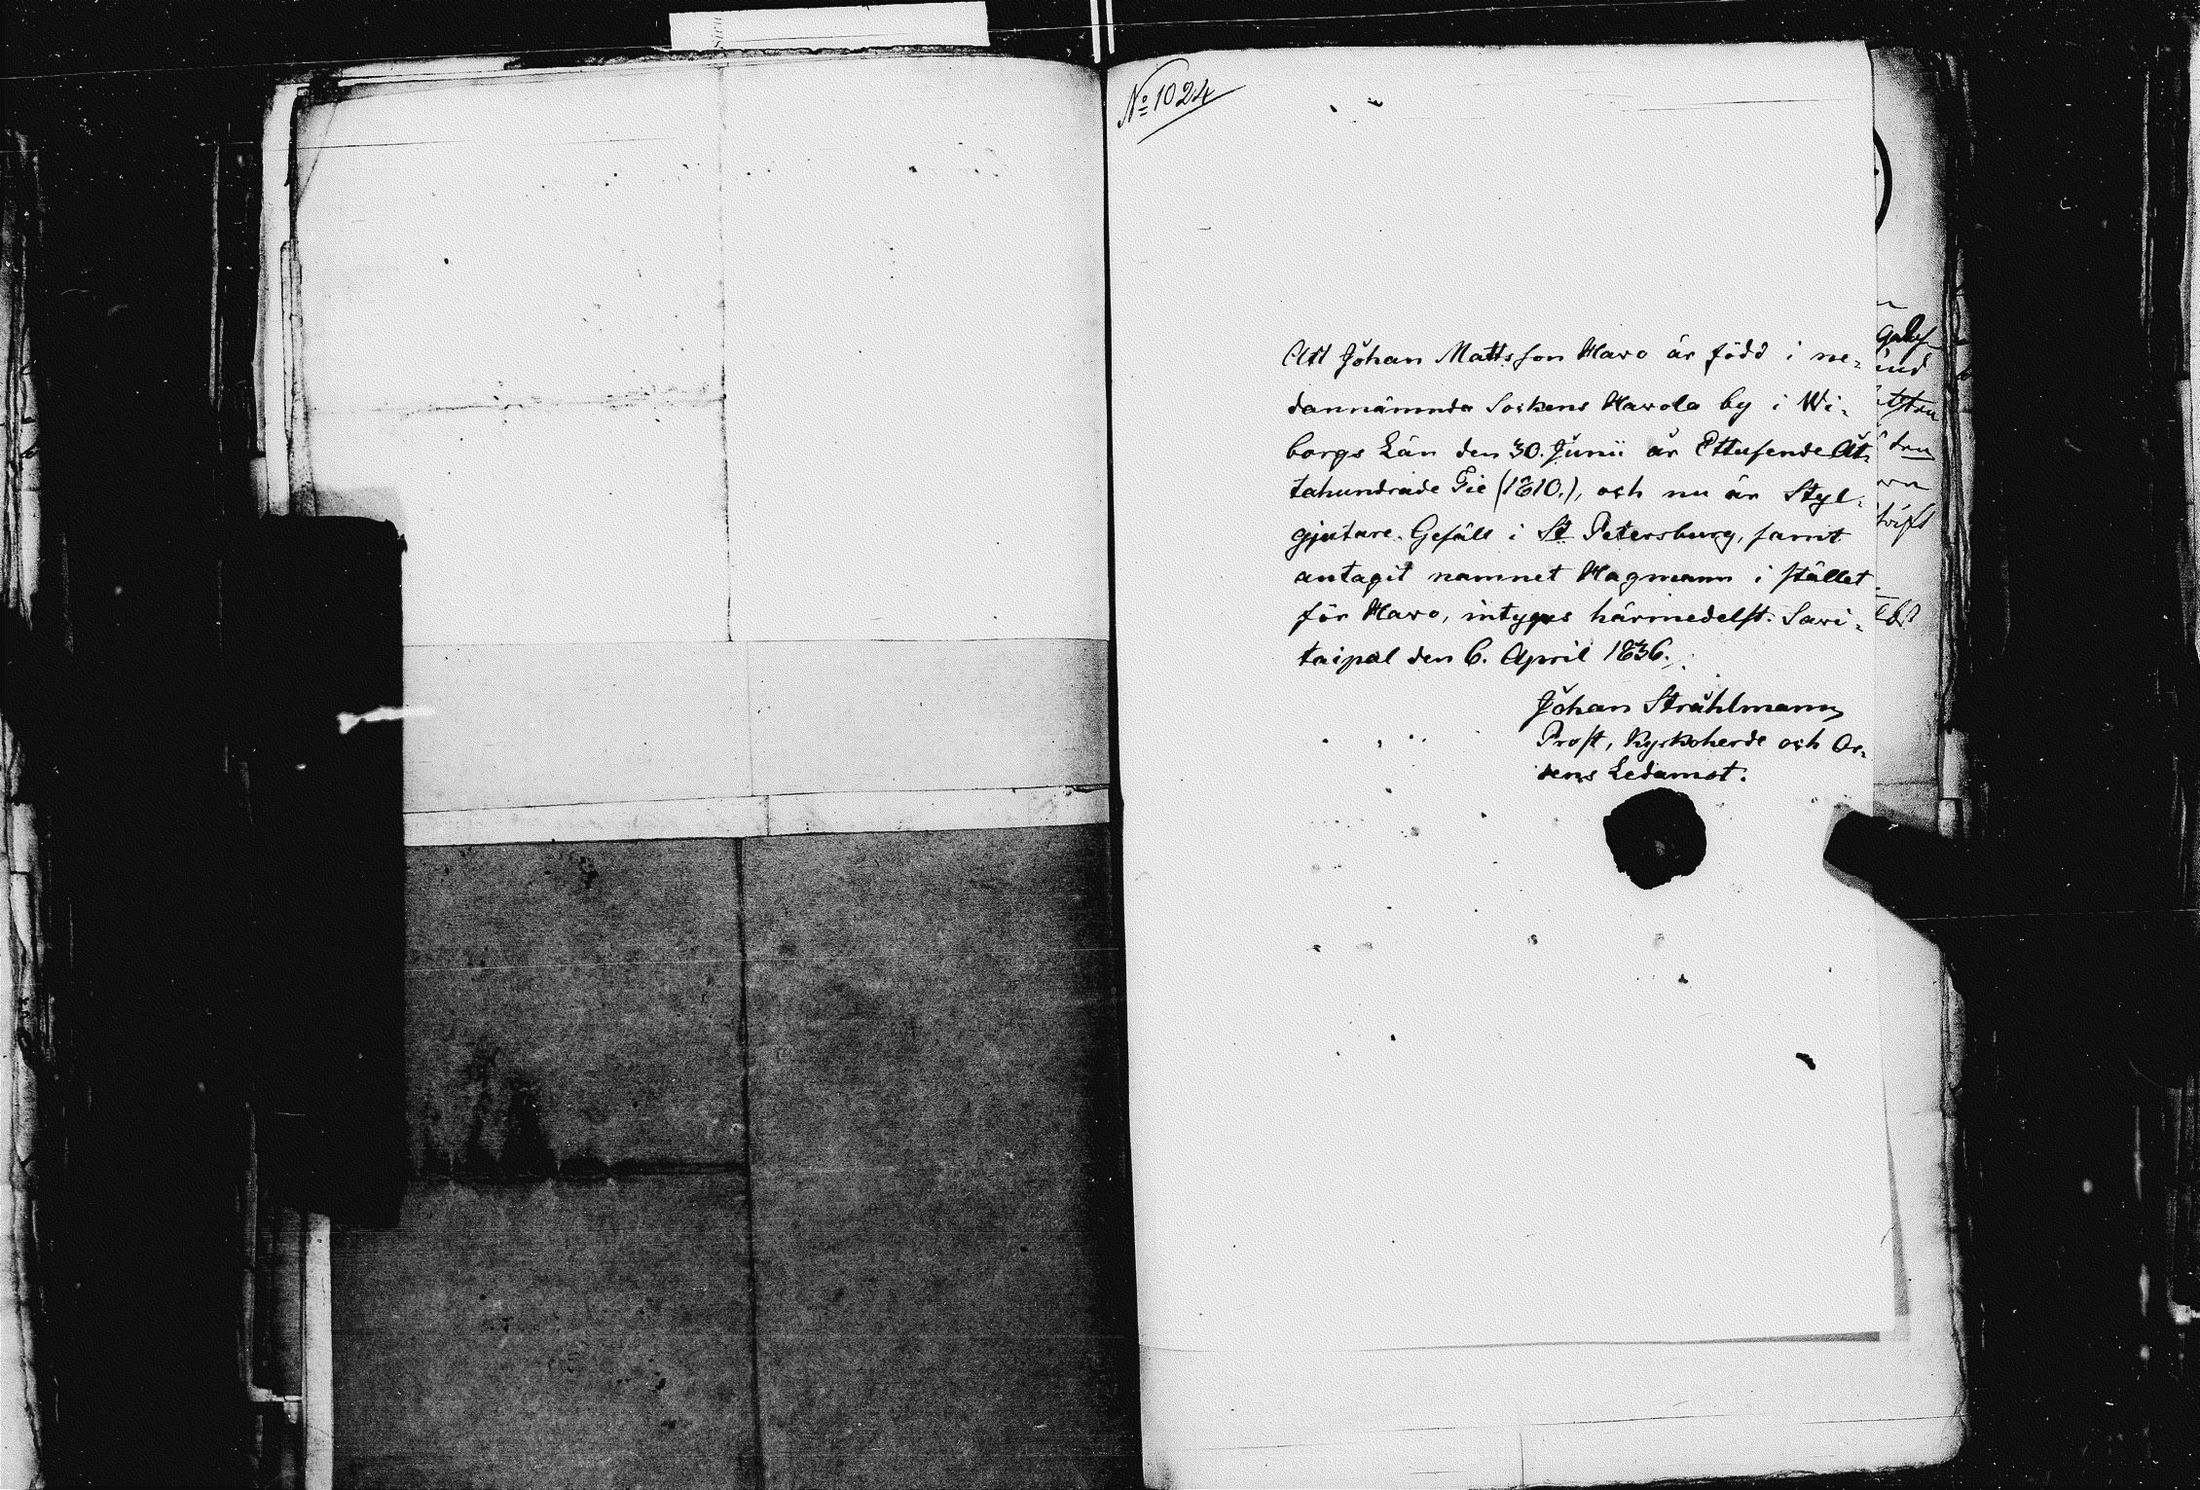 № 1024
Att Johan Mattsson Havo är född i ne-
dannämnda Sockens Havola by i Wi-
borgs Län den 30. Junii år Ettusende Åt-
tahundrade Tie (1810.), och nu är Styl-
gjutare-Gesäll i St Petersburg, samt
antagit namnet Hagmann i stället
för Havo, intygas härmedelst. Savi-
taipal den 6. April 1836.
Johan Stråhlmann
Prost, Kyrkoherde och Or-
dens Ledamot.